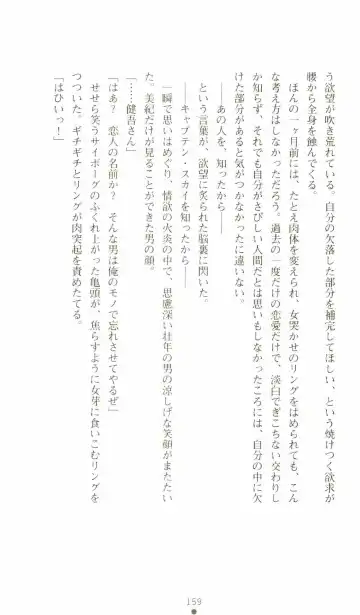 う欲望が吹き荒れている。自分の欠落した部分を補完してほしい、という焼けつく欲求が
腰から全身を蝕んでくる。
ほんの一ヶ月前には、たとえ肉体を変えられ、女哭かせのリングをはめられても、こん
な考え方はしなかっただろう。過去の一度だけの恋愛だけで、淡白でぎこちない交わりし
か知らず、それでも自分がさびしい人間だとは思いもしなかったころには、自分の中に欠
けた部分があると気がつかなかったに違いない。
――あの人を、知ったから――
――キャプテン・スカイを知ったから――
という言葉が、欲望に炙られた脳裏に閃いた。
一瞬で思いはめぐり、情欲の火炎の中で、思慮深い壮年の男の涼しげな笑顔がまたたい
た。美紀だけが見ることができた男の顔。
「……健吾さん」
「はあ？　恋人の名前か？　そんな男は俺のモノで忘れさせてやるぜ」
せせら笑うサイボーグのふくれ上がった亀頭が、焦らすように女芽に食いこむリングを
つついた。ギチギチとリングが肉突起を責めたてる。
「はひいっ！」
159